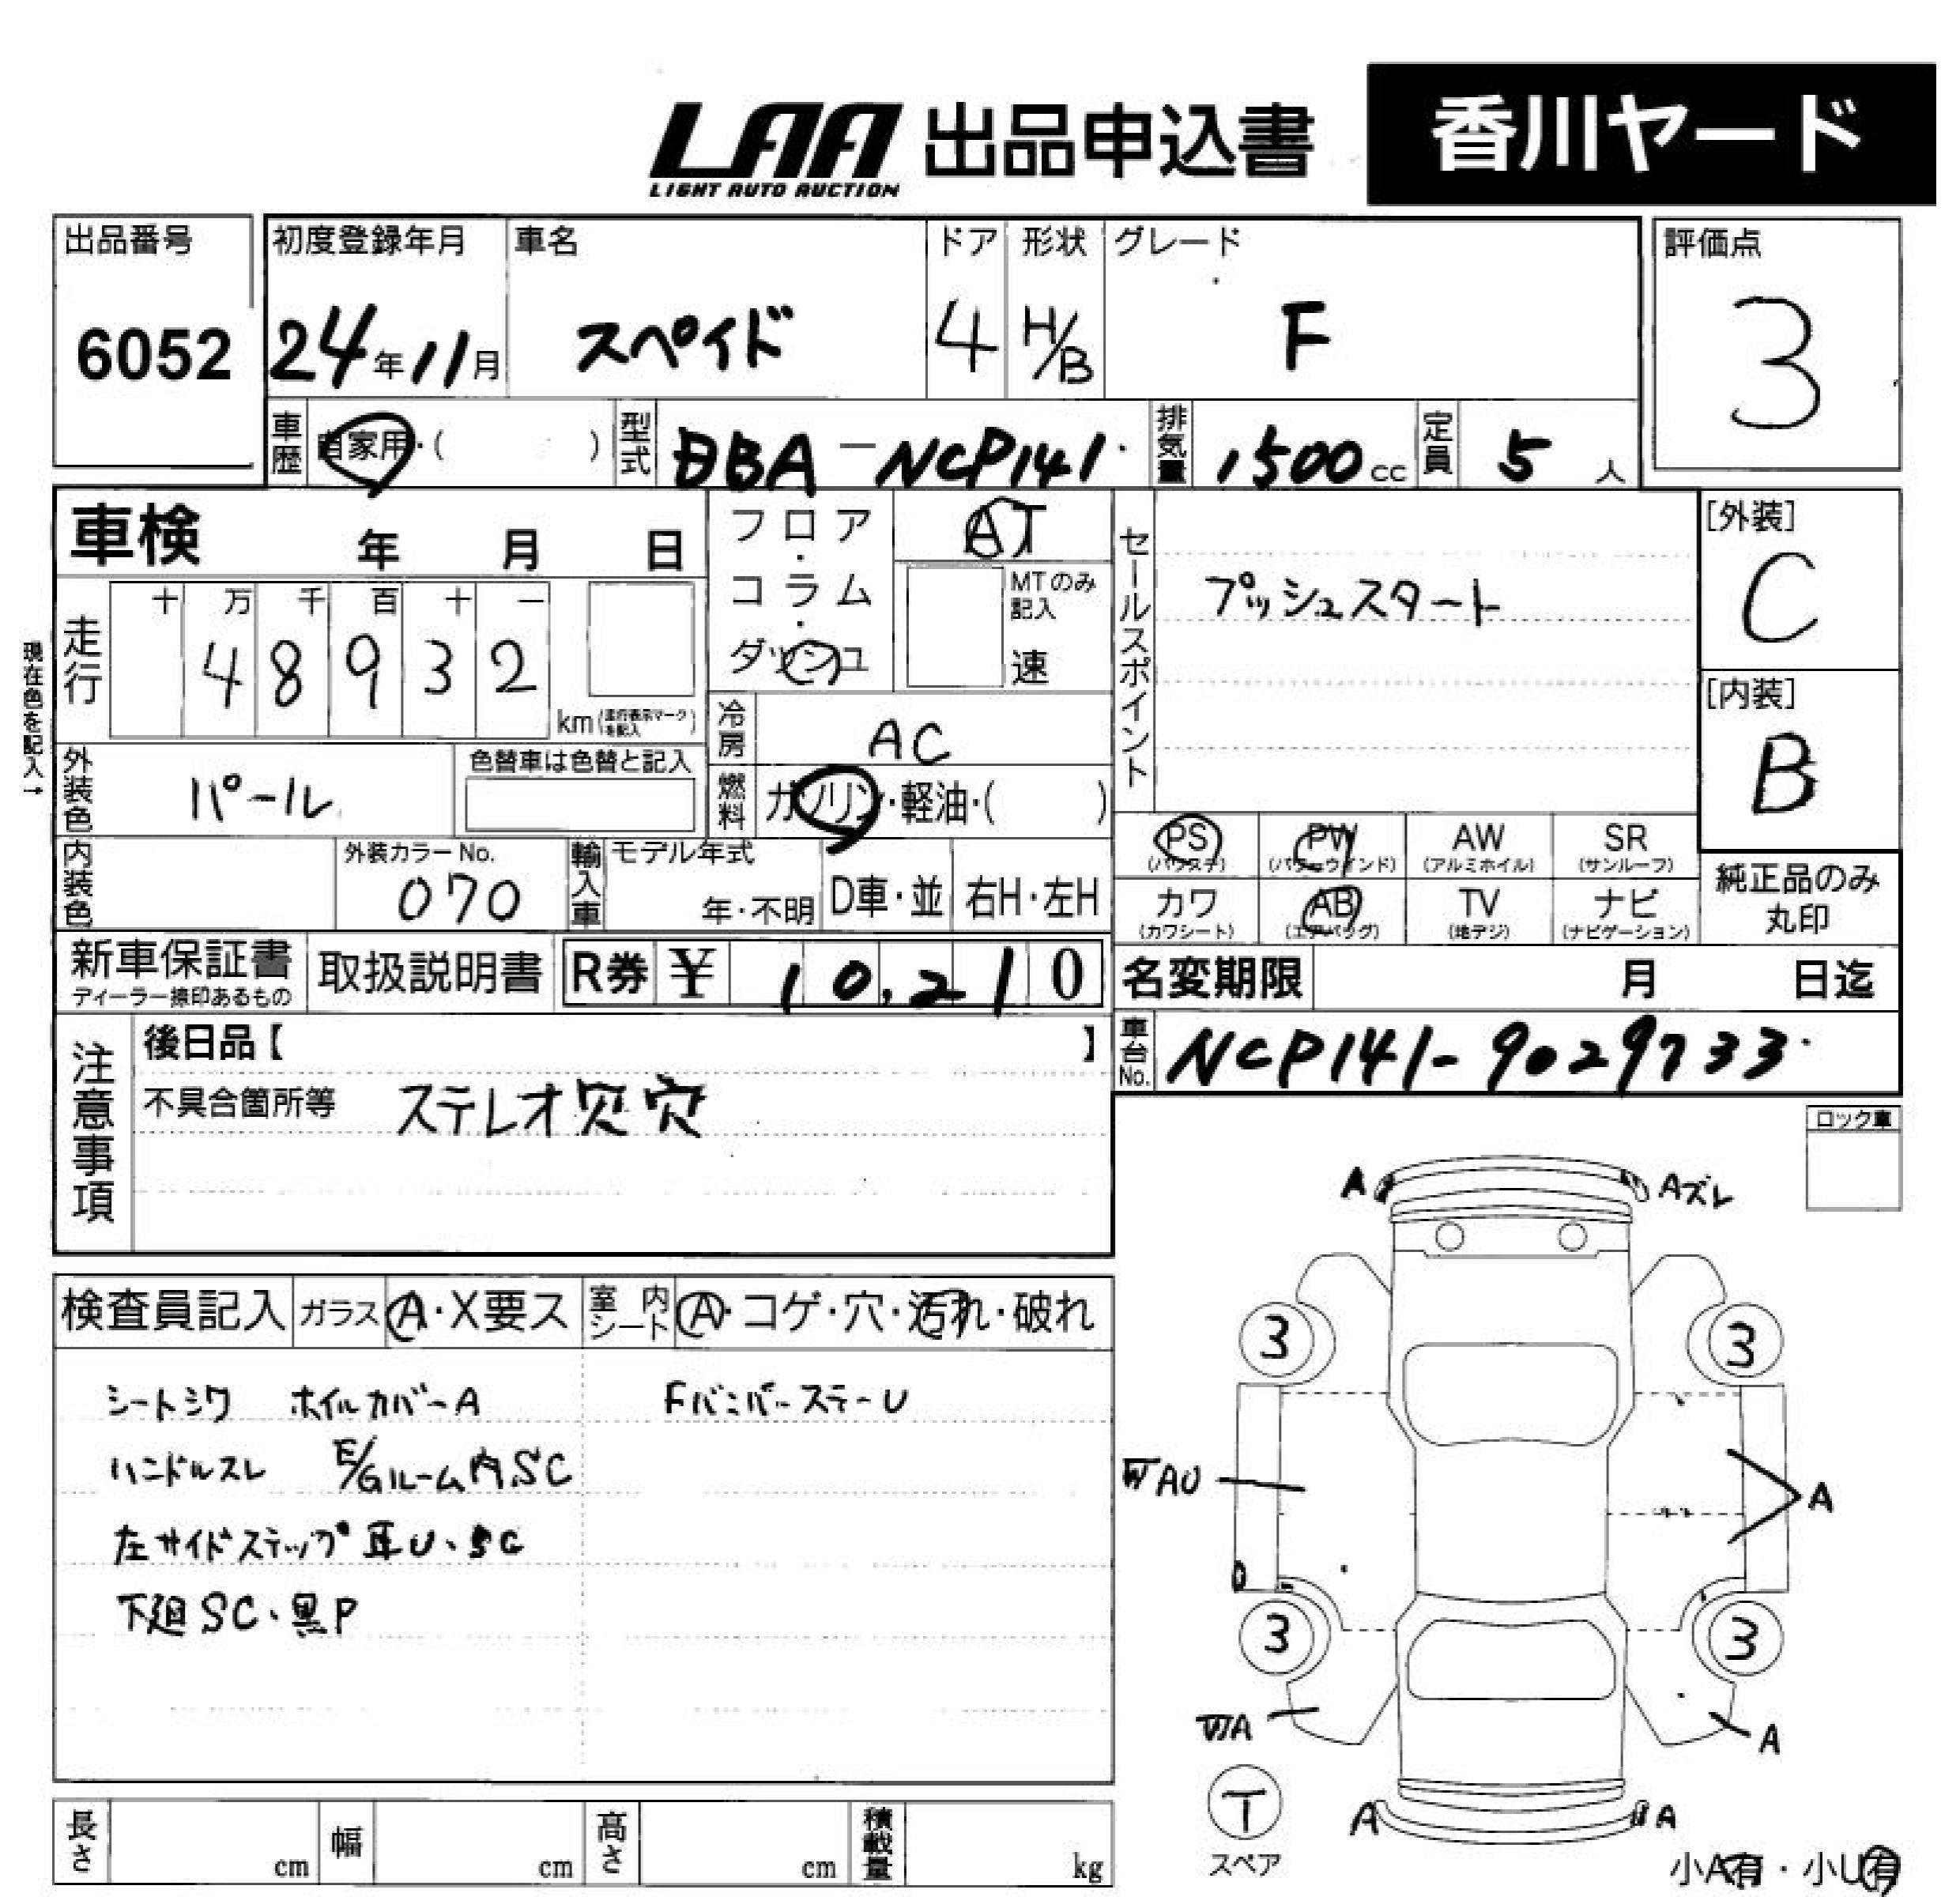 LAA 出品申込書 香川ヤード
LIGHT AUTO AUCTION
出品番号 初度登録年月 車名 ドア 形状 グレード 評価点
6052 24年11月 スペイド 4 H/B F 3
車歴 自家用・( ) 型式 DBA-NCP141 排気量 1500cc 定員 5人
車検 年 月 日
フロア・コラム・ダッシュ
AT
MTのみ記入
速
セールスポイント
プッシュスタート
[外装]
C
[内装]
B
現在色を記入→
走行
十 万 千 百 十 一
4 8 9 3 2
km(走行表示マークを記入)
冷房 AC
外装色 パール 色替車は色替と記入
燃料 ガソリン・軽油・( )
内装色 外装カラーNo. 輸入車 モデル年式
070 年・不明 D車・並 右H・左H
PS (パワステ) PW (パワーウインド) AW (アルミホイル) SR (サンルーフ)
カワ (カワシート) AB (エアバッグ) TV (地デジ) ナビ (ナビゲーション)
純正品のみ
丸印
新車保証書 取扱説明書 R券 ¥ 10,210
ディーラー捺印あるもの
名変期限 月 日迄
車台No. NCP141-9029733
注意事項
後日品【 】
不具合箇所等 ステレオ欠 穴
ロック車
検査員記入 ガラス A・X要ス 室内シート A・コゲ・穴・汚れ・破れ
シートシワ ホイルカバーA FバンパーステーU
ハンドルスレ E/Gルーム内SC
左サイドステップ耳U、SC
下廻SC、黒P
A Aズレ
3 3
AU A
3 3
A A
T
スペア
A A
小A有・小U有
長さ cm 幅 cm 高さ cm 積載量 kg